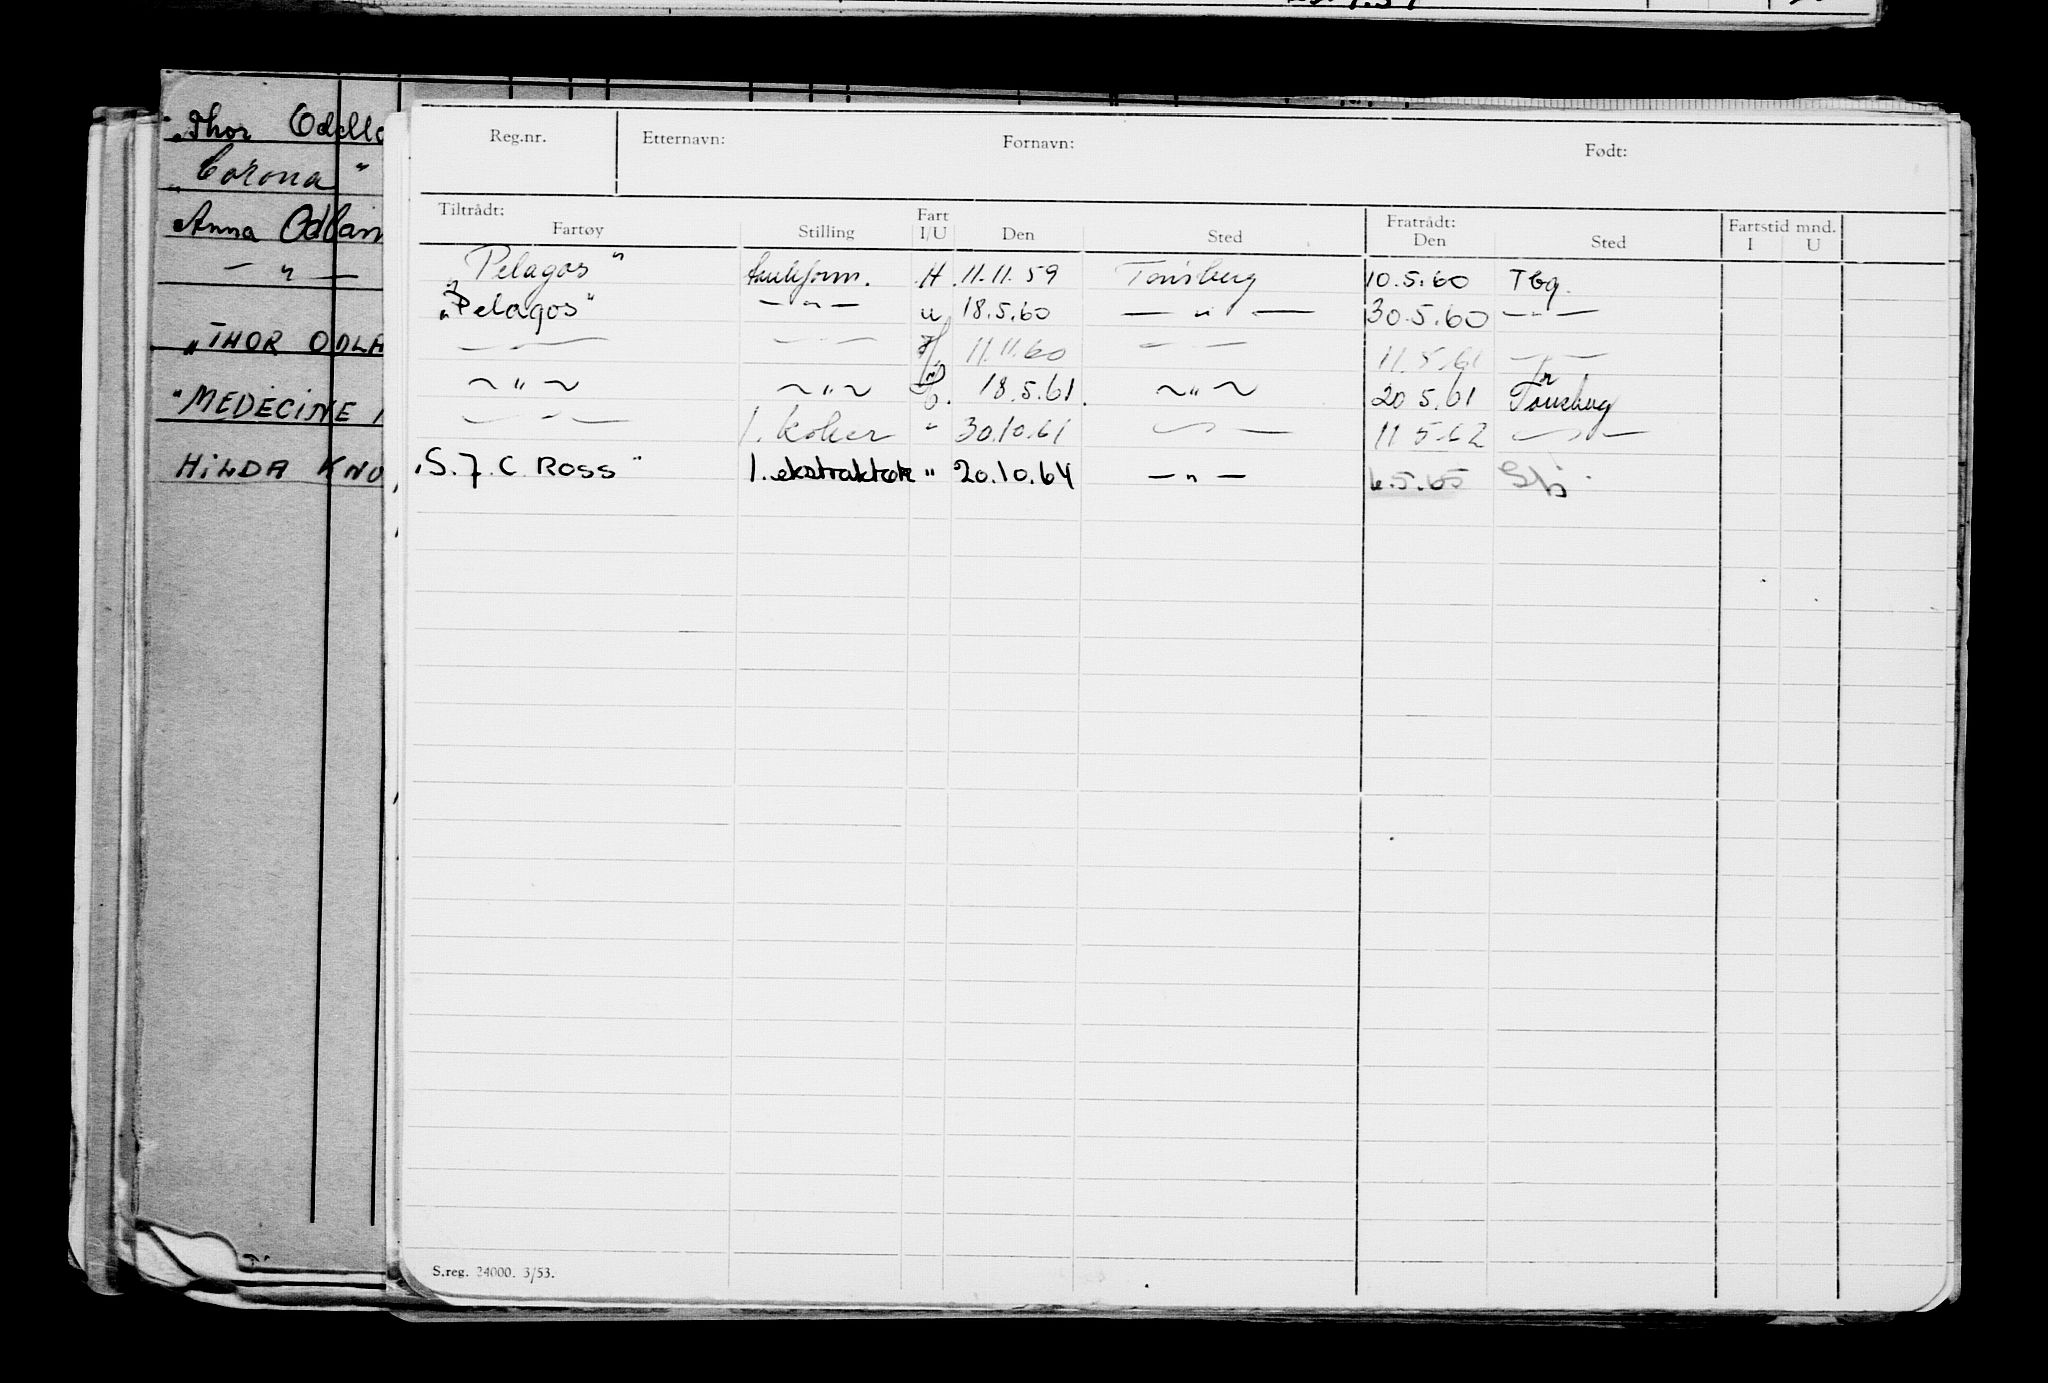 „Thor Odella
„Corona"
Anna Odlan
— " —
„THOR ODLA
"MEDECINE
HILDA KNU
Reg.nr. Etternavn: Fornavn: Født:
Tiltrådt: Fratrådt:
Fartøy Stilling Fart I/U Den Sted Den Sted Fartstid mnd. I U
„Pelagos" H. 11.11.59 Tønsberg 10.5.60 Tbg.
„Pelagos" — " — u 18.5.60 — " — 30.5.60 — " —
— " — — " — 11.11.60 — " — 11.5.61 — " —
~ " ~ ~ " ~ 18.5.61. ~ " ~ 20 5.61 Tønsberg
— " — 1. koker " 30.10.61 — " — 11 5.62 — " —
„S. J. C. ROSS" 1. ekstraktør " 20.10.64 — " — 6.5.65
S.reg. 24000. 3/53.